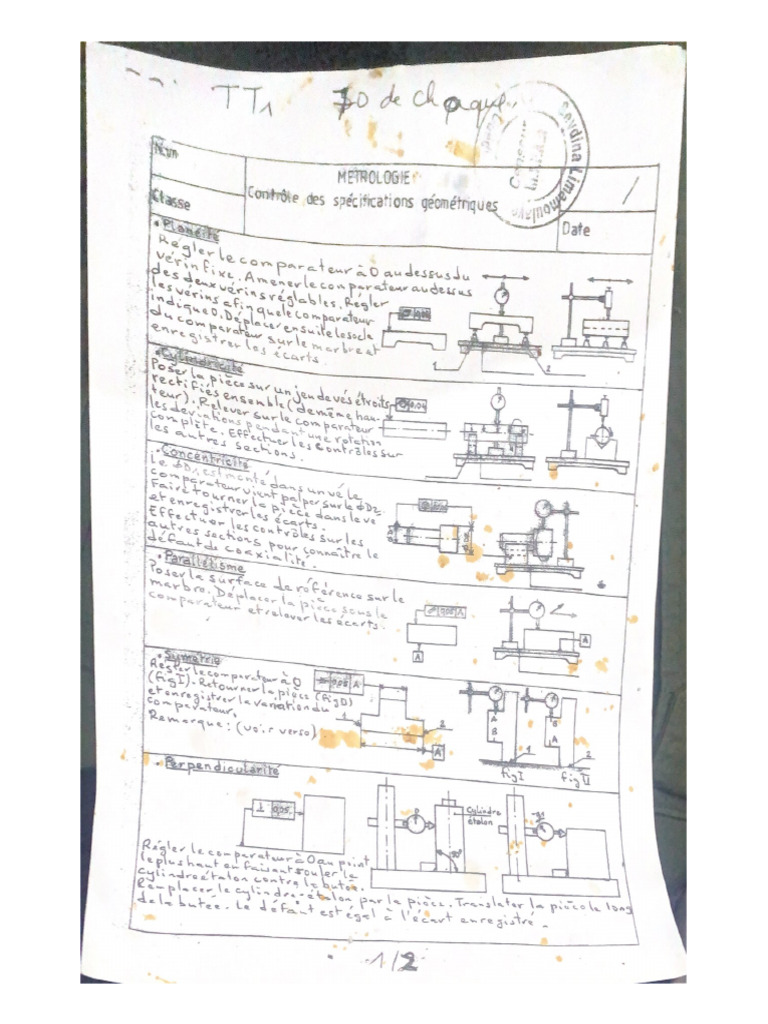 TT1 30 de chaque
Seydina Limamoulaye
Nom
METROLOGIE
Contrôle des spécifications géométriques
1
Classe
Date
• Planéité
Régler le comparateur à 0 au dessus du
vérin fixe. Amener le comparateur au dessus
des deux vérins réglables. Régler
les vérins afin que le comparateur
indique 0. Déplacer ensuite le socle
du comparateur sur le marbre et
enregistrer les écarts.
1
2
• Cylindricité
Poser la pièce sur un jeu de vés étroits
rectifiés ensemble (de même hau-
teur). Relever sur le comparateur
les déviations pendant une rotation
complète. Effectuer les contrôles sur
les autres sections.
• Concentricité
Le ΦD1 est monté dans un vé le
comparateur vient palper sur le ΦD2
Faire tourner la pièce dans le vé
et enregistrer les écarts.
Effectuer les contrôles sur les
autres sections pour connaître le
défaut de coaxialité.
• Parallélisme
Poser la surface de référence sur le
marbre. Déplacer la pièce sous le
comparateur et relever les écarts.
0,05 A
A
A
• Symétrie
Régler le comparateur à 0
(fig I). Retourner la pièce (fig II)
et enregistrer la variation du
comparateur.
Remarque: (voir verso)
0,05 A
1
2
A
A
B
B
A
1
2
fig I
fig II
• Perpendicularité
⊥ 0,05
Cylindre
étalon
90°
Régler le comparateur à 0 au point
le plus haut en faisant rouler le
cylindre étalon contre la butée.
Remplacer le cylindre-étalon par la pièce. Translater la pièce le long
de la butée. Le défaut est égal à l'écart enregistré.
1/2